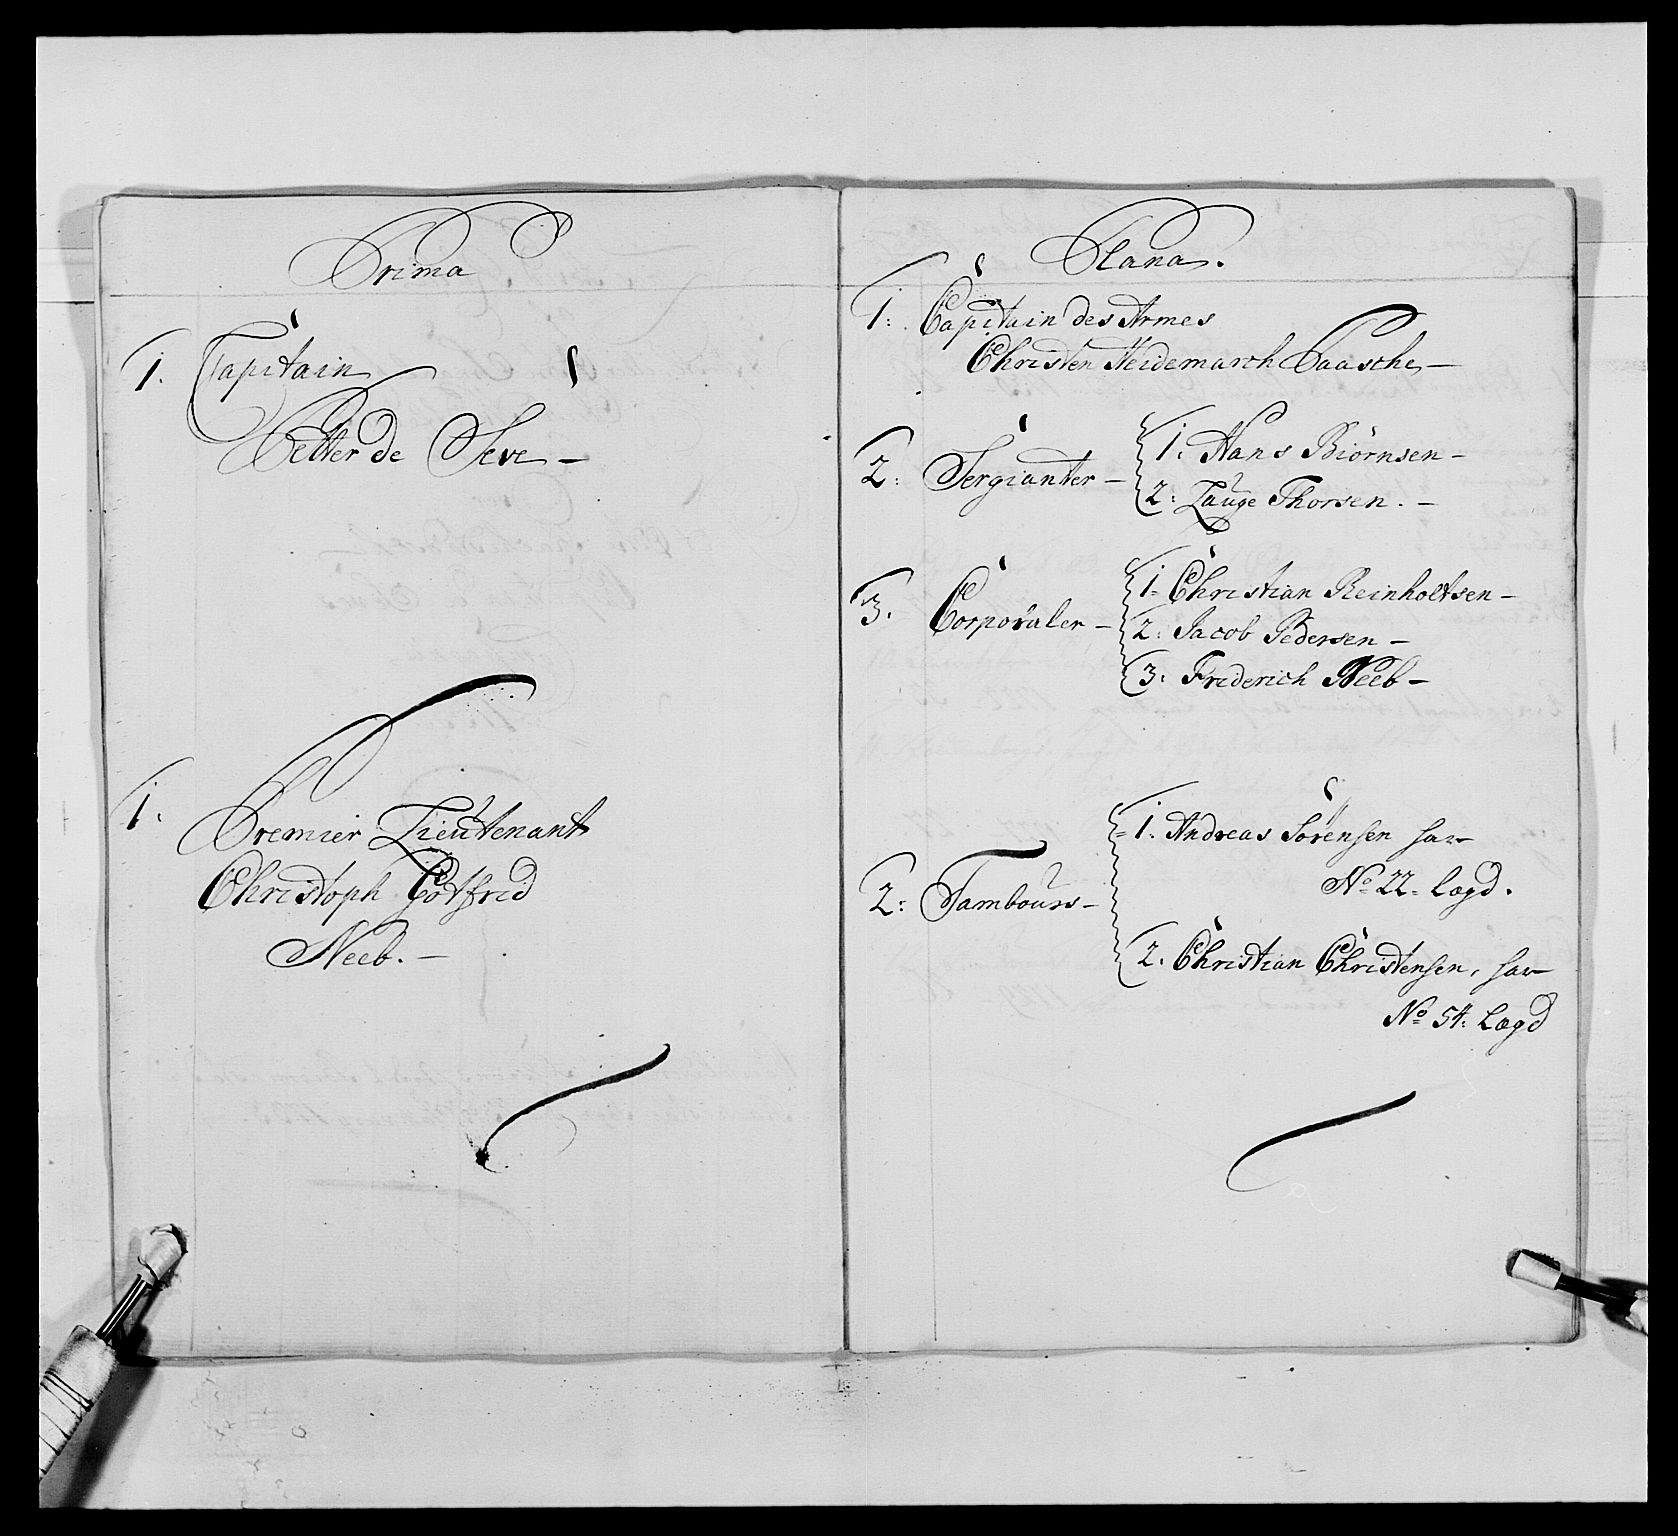 Prima
1. Capitain
Petter de Seve –
1. Premier Lieutenant
Christoph Gotfrid
Neeb. –
Plana.
1: Capitain des Armes
Christen Heidemarch Paasche –
2: Sergianter –
1: Hans Biörnsen –
2: Lauge Thorsen. –
3. Corporaler –
1. Christian Reinholtsen –
2: Jacob Pedersen –
3: Friderich Neeb –
2: Tambours –
1. Andreas Sörensen har
No 22. Lægd.
2. Christian Christensen, har
No 54: Lægd